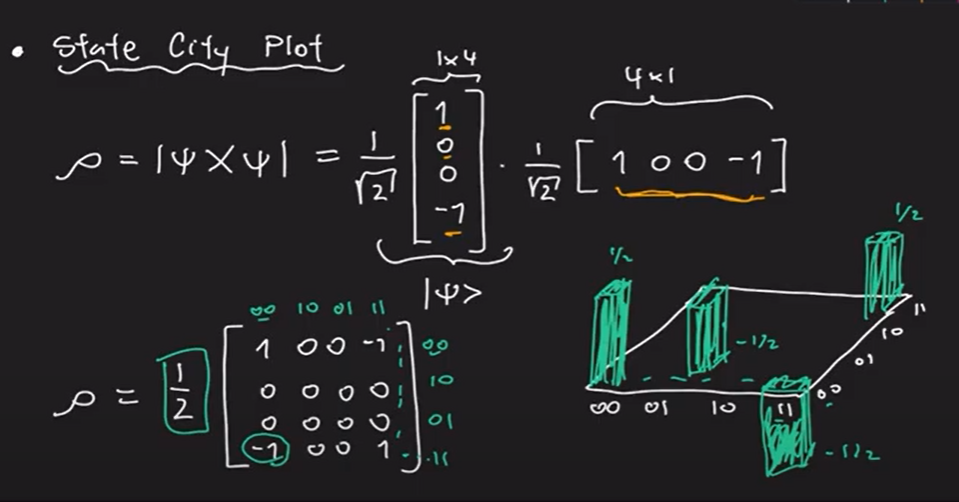 • State City Plot
1x4
4x1
ρ = |ψXψ| = 1/√2 [1 0 0 -1] · 1/√2 [1 0 0 -1]
|ψ>
00 10 01 11
ρ = 1/2 [
1 0 0 -1 00
0 0 0 0 10
0 0 0 0 01
-1 0 0 1 11
]
1/2
1/2
-1/2
-1/2
00 01 10 11
00
01
10
11